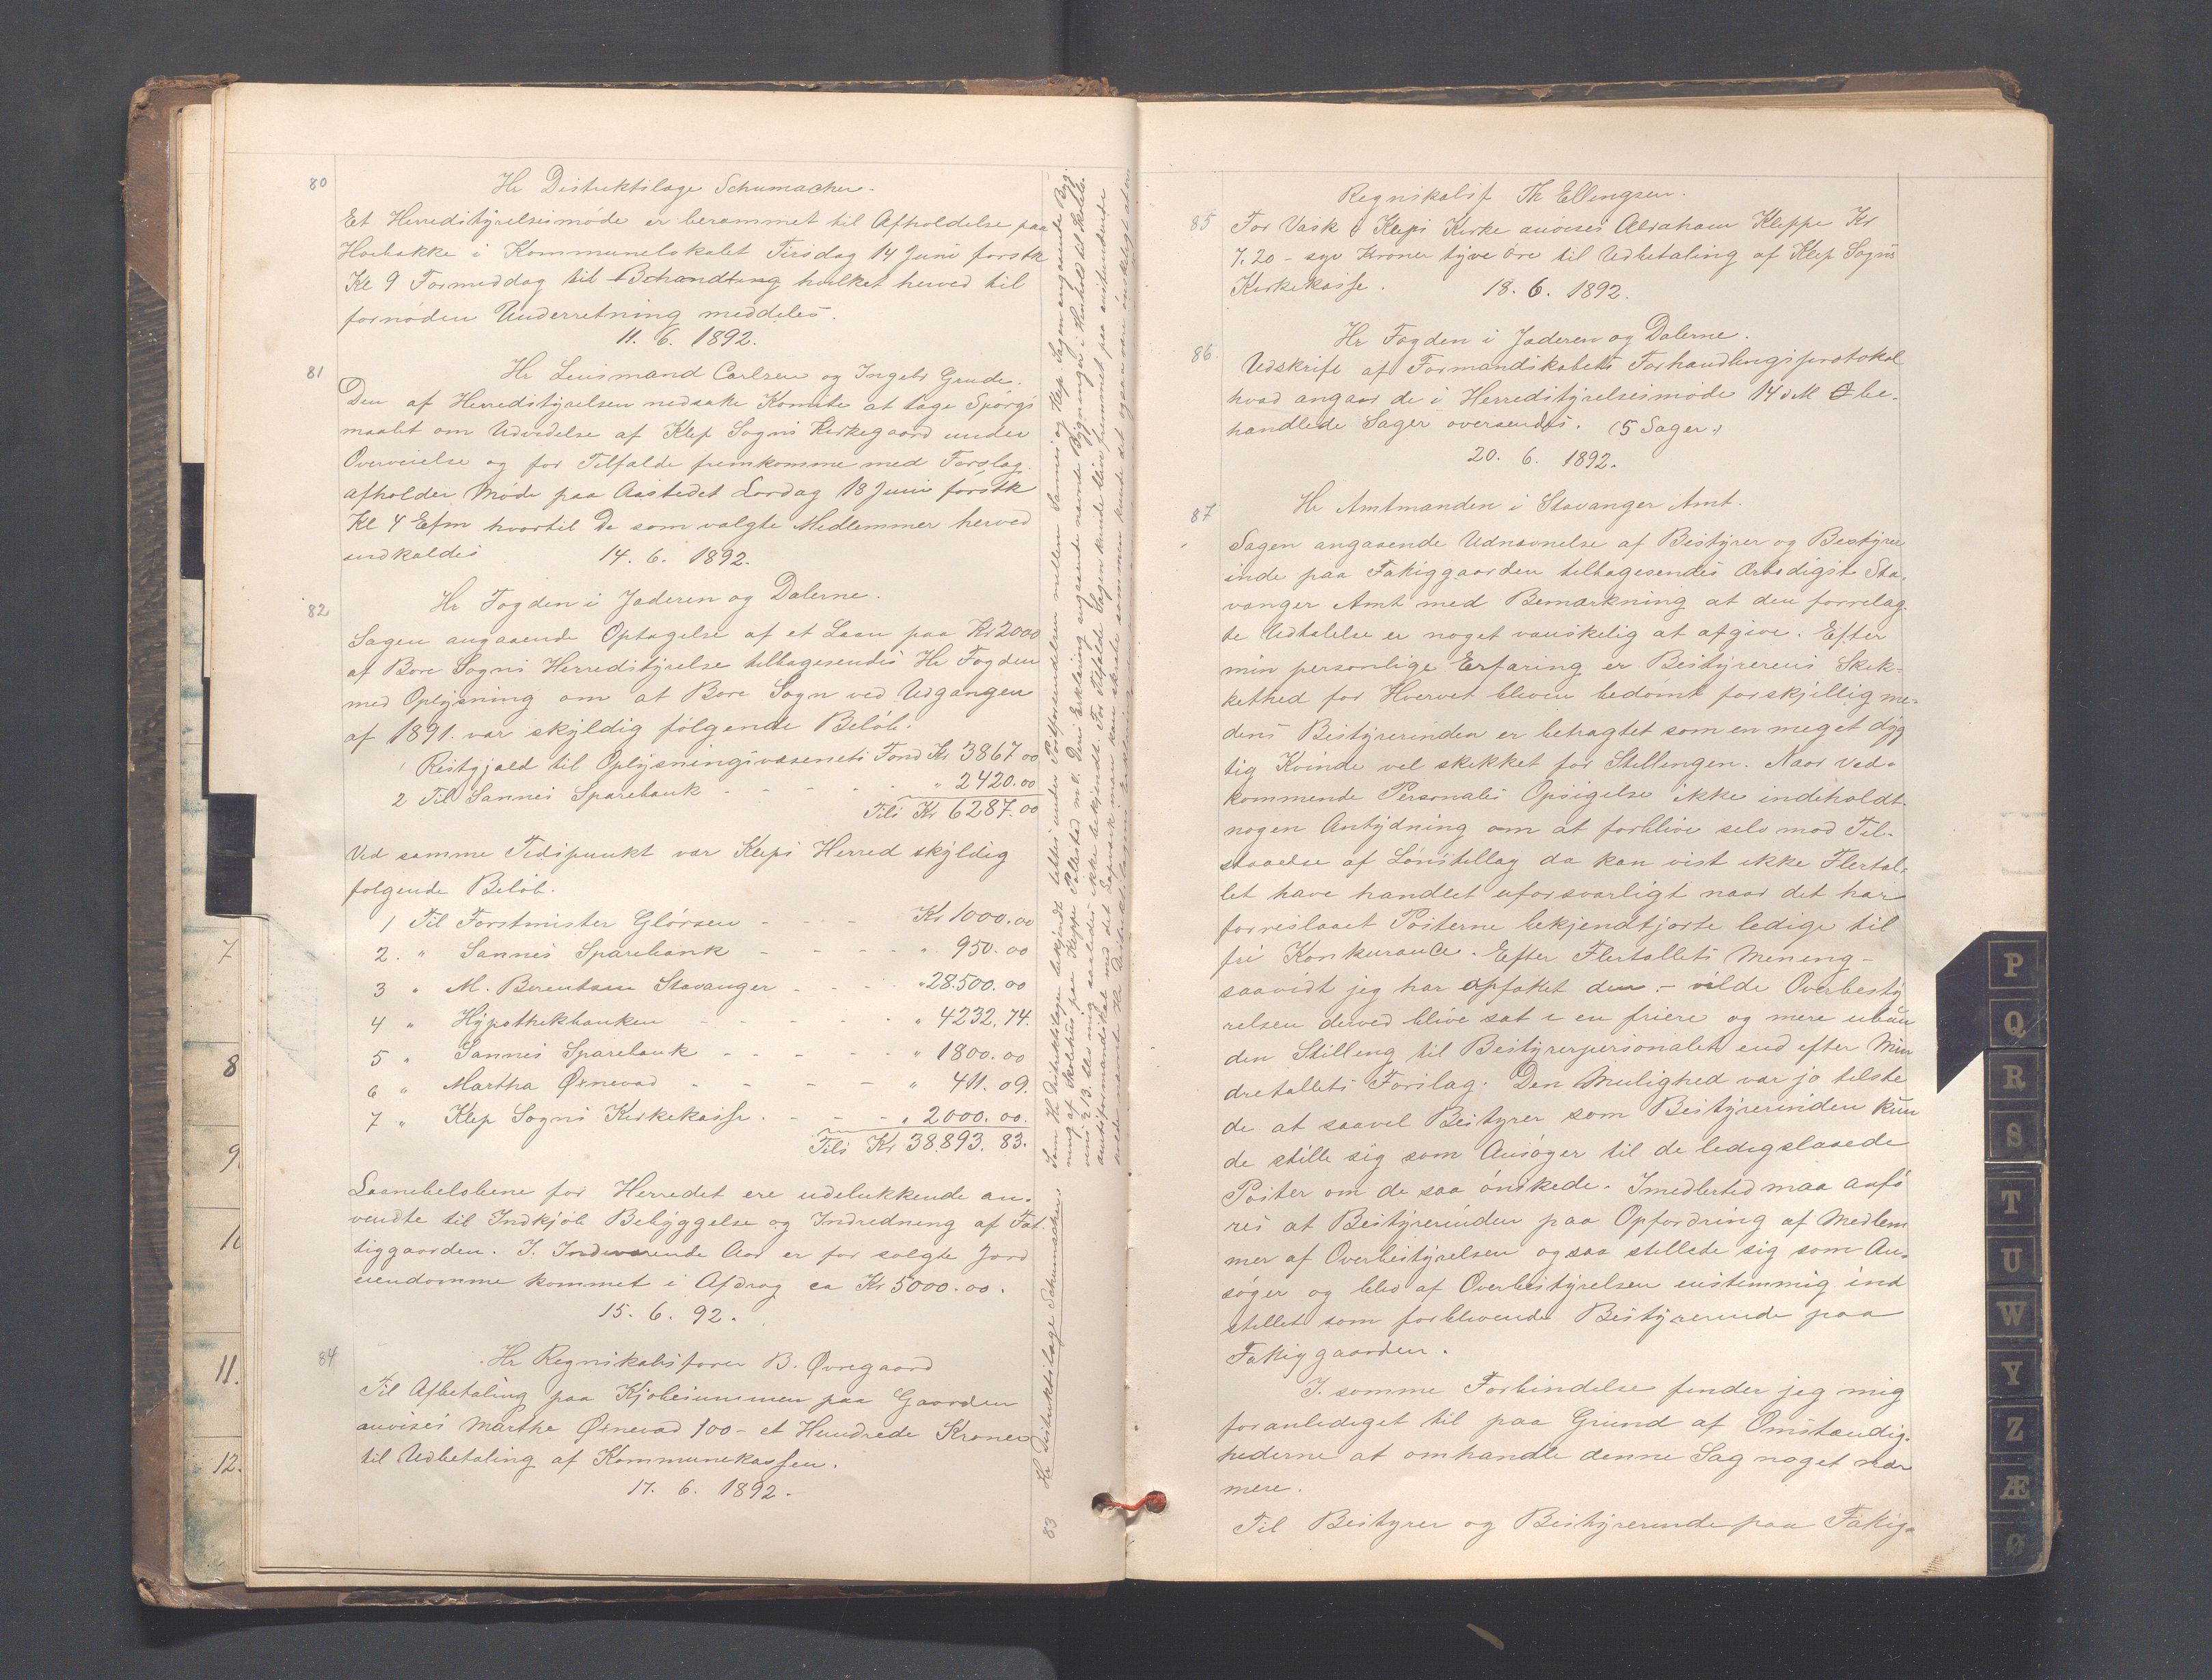 80
Hr Distriktslæge Schumacher.
Et Herredstyrelsesmøde er berammet til Afholdelse paa
Hoebakke i Kommunelokalet Tirsdag 14 Juni førstk
Kl 9 Formiddag til Behandling hvilket herved til
fornøden Underretning meddeles.
11. 6. 1892.
81
Hr Lensmand Carlsen og Ingebr Grude.
Den af Herredstyrelsen nedsatte Komite at tage Spørgs
maalet om Udvidelse af Klep Sogns Kirkegaard under
Overveielse og for Tilfælde fremkomme med Forslag
afholder Møde paa Aastedet Lørdag 18 Juni førstk
Kl 4 Efm hvortil De som valgte Medlemmer herved
indkaldes
14. 6. 1892.
82
Hr Fogden i Jæderen og Dalerne.
Sagen angaaende Optagelse af et Laan paa Kr 2000
af Bore Sogns Herredstyrelse tilbagesendes Hr Fogden
med Oplysning om at Bore Sogn ved Udgangen
af 1891. var skyldig følgende Beløb:
1 Restgjæld til Oplysningsvæsenets Fond Kr 3867.00
2 Til Sannes Sparebank - - - - - " 2420.00
Tils Kr 6287.00
Ved samme Tidspunkt var Kleps Herred skyldig
følgende Beløb.
1 Til Forstmester Glørsen - - - Kr 1000.00
2. " Sannes Sparebank - - - - " 950.00
3 " M. Berentsen Stavanger - - - " 28.500.00
4 " Hypothekbanken - - - - - " 4232.74.
5 " Sannes Sparebank - - - - - " 1800.00
6 " Martha Øxnevad - - - - " 411.09.
7 " Klep Sogns Kirkekasse. - - - " 2000.00.
Tils Kr 38.893.83.
Laanebeløbene for Herredet ere udelukkende an-
vendte til Indkjøb Bebyggelse og Indredning af Fat
tiggaarden. I Indeværende Aar er for solgte Jord
eiendomme kommet i Afdrag ca Kr 5000.00.
15. 6. 92.
84
Hr Regnskabsfører B. Øvregaard
Til Afbetaling paa Kjøbesummen paa Gaarden
anvises Martha Øxnevad 100 - et Hundrede Kroner
til Udbetaling af Kommunekassen.
17. 6. 1892.
83
Hr Distriktslæge Schumacher.
Som Hr Distriktslægen bekjendt tilles under Postforsendelsen mellem Sannes og Klep. Sagen angaaende Byg
ning af Skolehus paa Kleppe Pollestad m.v. Deres Erklæring angaaende nævnte Bygninger i Henhold til Skolelo
vens § 13. blev mig saaledes ikke bekjendt. For Tilfælde Sagen kunde blive fremmet paa anstændende
Regnskabsf Th Ellingsen.
85
For Vask i Kleps Kirke anvises Abraham Kleppe Kr
7.20 - syv Kroner tyve Øre til Udbetaling af Klep Sogns
Kirkekasse.
18. 6. 1892.
86.
Hr Fogden i Jæderen og Dalerne.
Udskrift af Formandskabets Forhandlingsprotokol
hvad angaar de i Herredstyrelsesmøde 14 d M be-
handlede Sager oversendes. (5 Sager.)
20. 6. 1892.
87
Hr Amtmanden i Stavanger Amt.
Sagen angaaende Udnævnelse af Bestyrer og Bestyrer
inde paa Fattiggaarden tilbagesendes ærbødigst Sta-
vanger Amt med Bemærkning at den forrelag-
te Udtalelse er noget vanskelig at afgive. Efter
min personlige Erfaring er Bestyrerens Skik-
kethed for Hvervet bleven bedømt forskjellig me-
dens Bestyrerinden er betragtet som en meget dyg
tig Kvinde vel skikket for Stillingen. Naar Ved-
kommende Personales Opsigelse ikke indeholdt
nogen Antydning om at forblive selv mod Til-
staaelse af Lønstillæg da kan vist ikke Flertal-
let have handlet uforsvarligt naar det har
forreslaaet Posterne bekjendtgjorte ledige til
fri Konkurance. Efter Flertallets Mening -
saavidt jeg har opfattet den - vilde Overbesty
relsen derved blive sat i en friere og mere ubun
den Stilling til Bestyrerpersonalet end efter Min
dretallets Forslag. Den Mulighed var jo tilste
de at saavel Bestyrer som Bestyrerinden kun
de stille sig som Ansøger til de ledigslaaede
Poster om de saa ønskede. Imedlertid maa anfø
res at Bestyrerinden paa Opfordring af Medlem
mer af Overbestyrelsen ogsaa stillede sig som An-
søger og blev af Overbestyrelsen enstemmig ind
stillet som forblivende Bestyrerinde paa
Fattiggaarden.
I samme Forbindelse finder jeg mig
foranlediget til paa Grund af Omstændig-
hederne at omhandle denne Sag noget nær
mere.
Til Bestyrer og Bestyrerinde paa Fattig-
7
8
9
10
11.
12.
P
Q
R
S
T
U
W
Y
Z
Æ
Ø